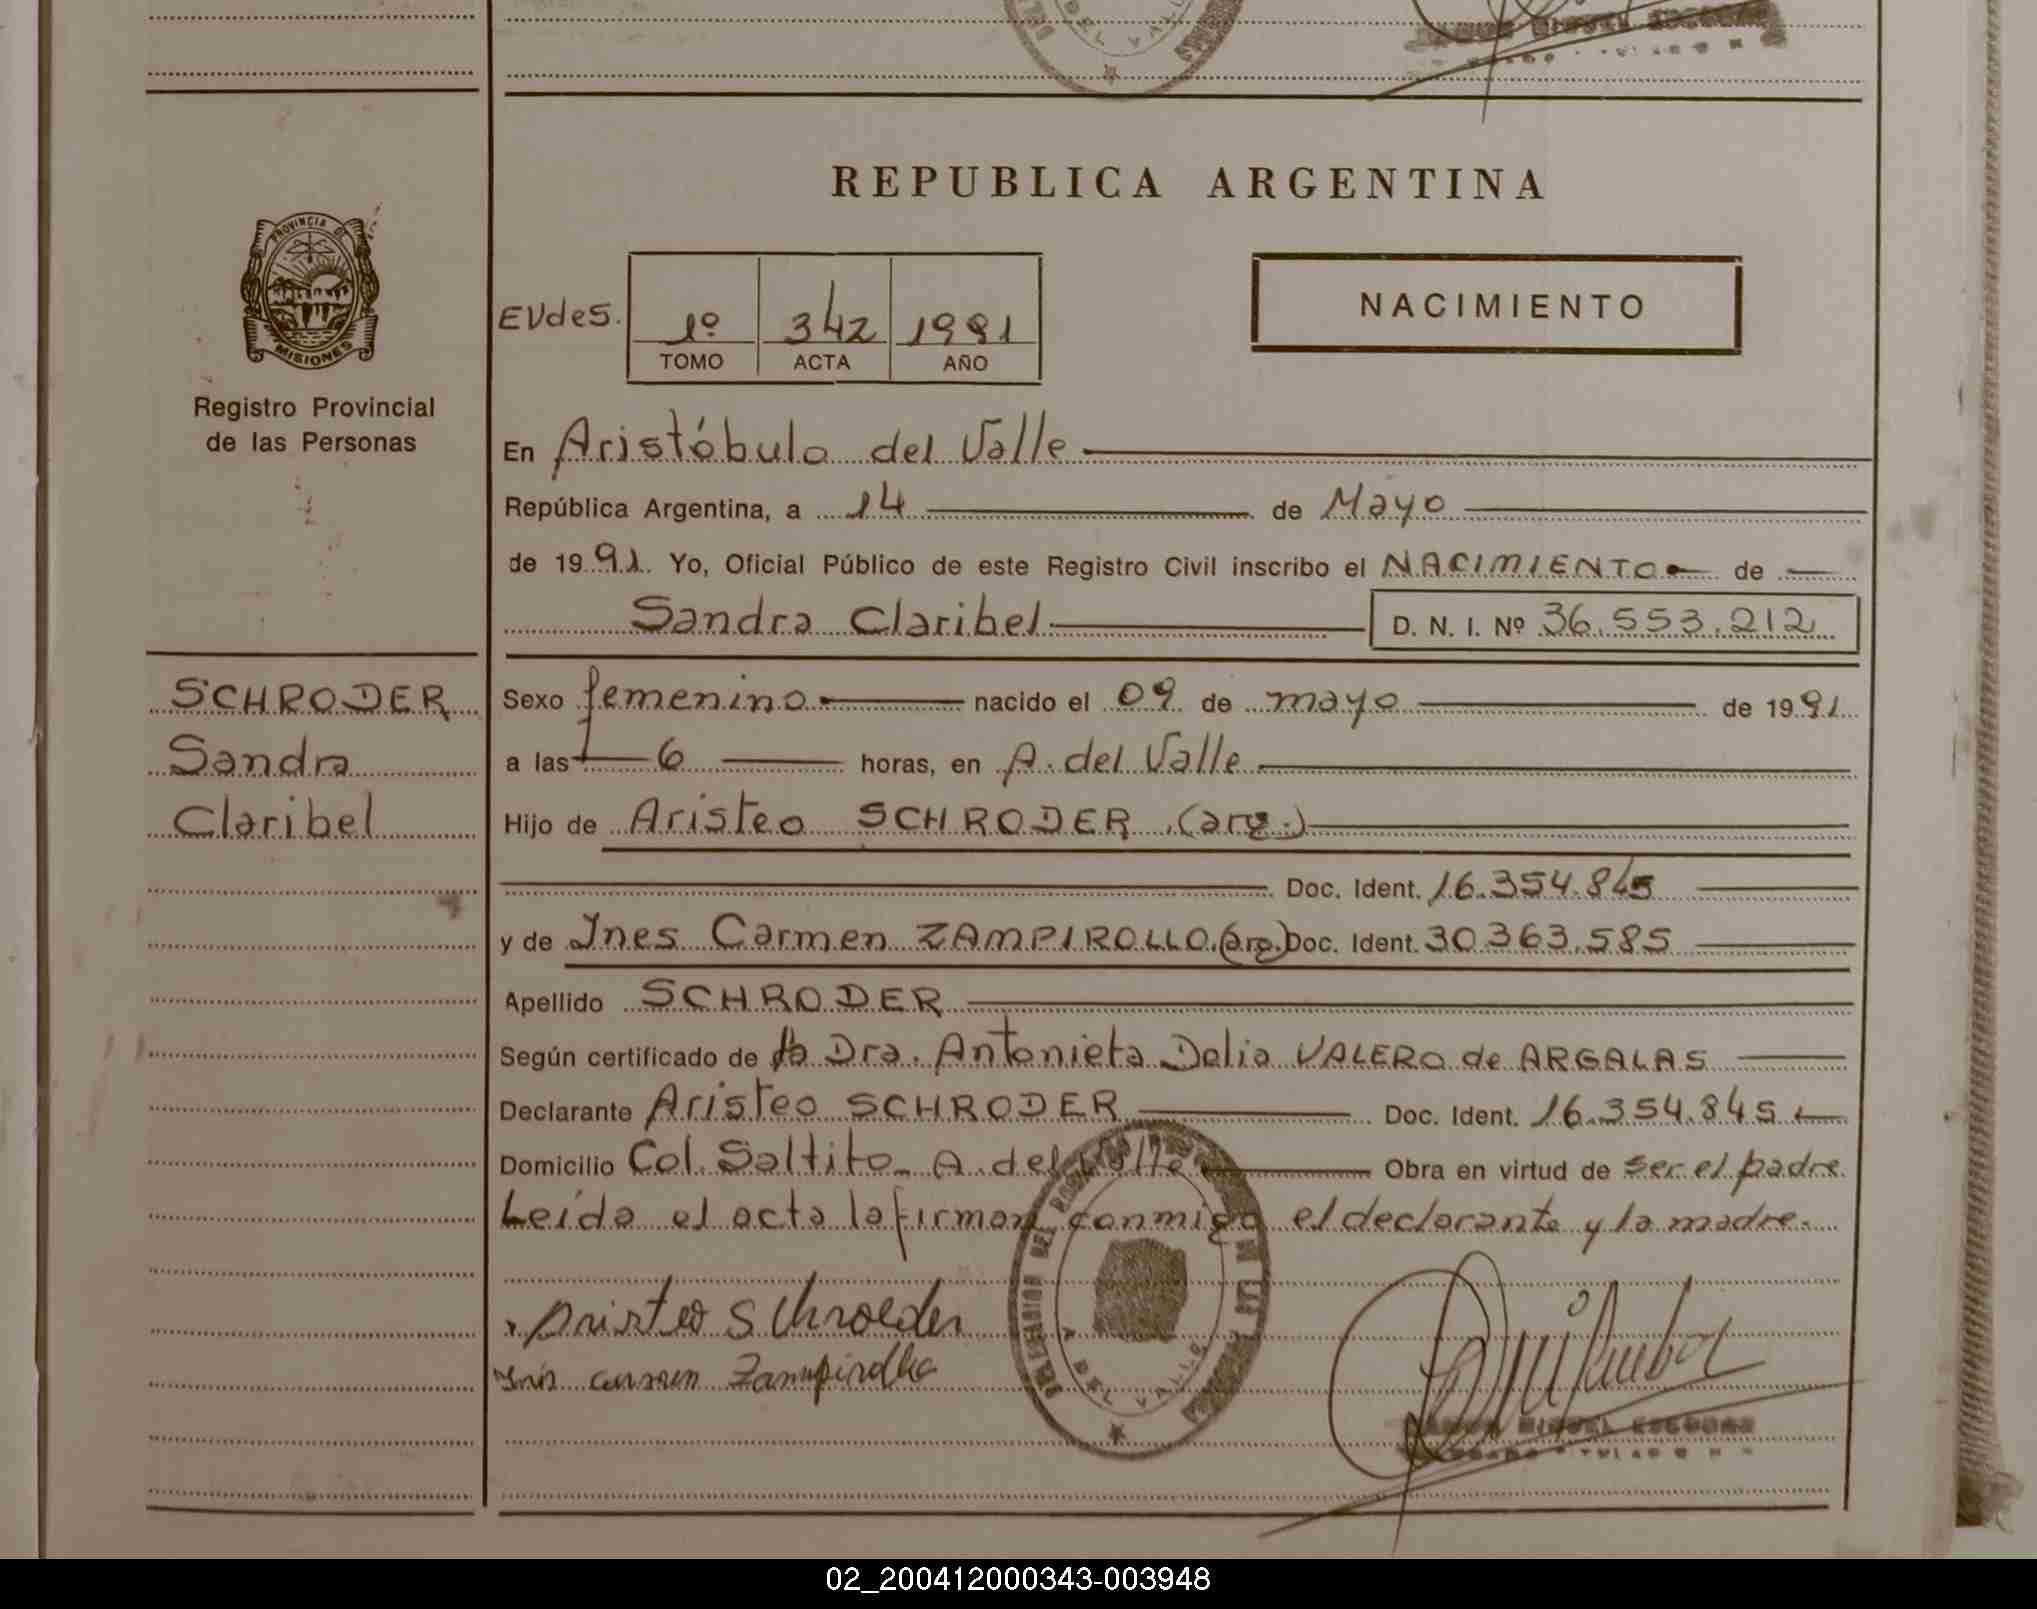 DEL VALLE
REPUBLICA ARGENTINA
PROVINCIA DE
MISIONES
Registro Provincial
de las Personas
EVdeS. 1º 342 1991
TOMO ACTA AÑO
NACIMIENTO
En Aristóbulo del Valle
República Argentina, a 14 de Mayo
de 1991. Yo, Oficial Público de este Registro Civil inscribo el NACIMIENTO de
Sandra Claribel D. N. I. Nº 36.553.212
SCHRODER
Sandra
Claribel
Sexo femenino nacido el 09 de mayo de 1991
a las 6 horas, en A. del Valle
Hijo de Aristeo SCHRODER (arg.)
Doc. Ident. 16.354.845
y de Ines Carmen ZAMPIROLLO (arg.) Doc. Ident. 30363.585
Apellido SCHRODER
Según certificado de la Dra. Antonieta Delia VALERO de ARGALAS
Declarante Aristeo SCHRODER Doc. Ident. 16.354.845
Domicilio Col. Saltito A. del Valle Obra en virtud de ser el padre.
Leída el acta la firman conmigo el declarante y la madre.
Aristeo Schroeder
carmen
DEL VALLE
MIGUEL ESCOBAR
02_200412000343-003948